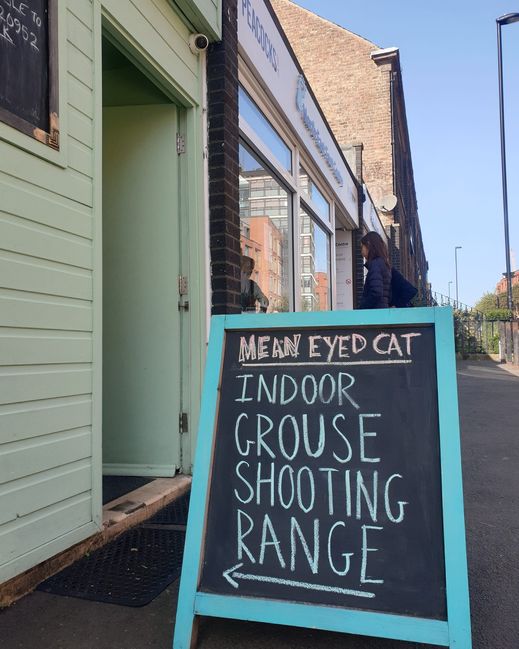 BLE TO
20952
PEACOCKS
MEAN EYED CAT
INDOOR
GROUSE
SHOOTING
RANGE